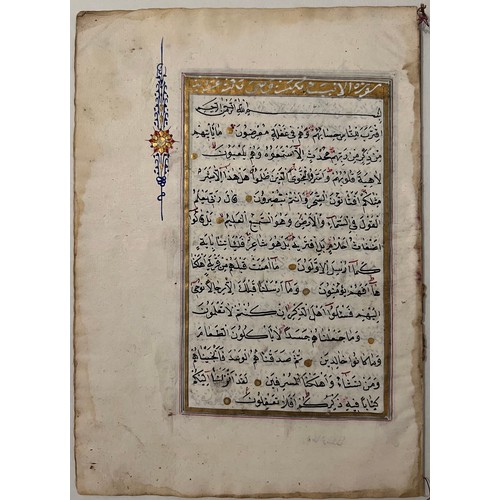 سورة الانبياء مكية وهي مائة
بسم الله الرحمن الرحيم
اقترب للناس حسابهم وهم في غفلة معرضون ما ياتيهم
من ذكر من ربهم محدث الا استمعوه وهم يلعبون
لاهية قلوبهم واسروا النجوى الذين ظلموا هل هذا الا بشر
مثلكم افتاتون السحر وانتم تبصرون قال ربي يعلم
القول في السماء والارض وهو السميع العليم بل قالوا
اضغاث احلام بل افتريه بل هو شاعر فلياتنا باية
كما ارسل الاولون ما امنت قبلهم من قرية اهلكنا
ها افهم يؤمنون وما ارسلنا قبلك الا رجالا نوحي
اليهم فسئلوا اهل الذكر ان كنتم لا تعلمون
وما جعلناهم جسدا لا ياكلون الطعام
وما كانوا خالدين ثم صدقناهم الوعد فانجيناهم
ومن نشاء واهلكنا المسرفين لقد انزلنا اليكم
كتابا فيه ذكركم افلا تعقلون